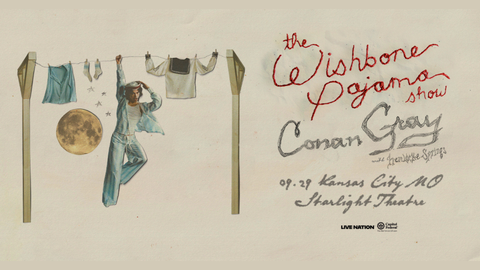 the
Wishbone
Pajama
show
Conan Gray
09.29 Kansas City MO
Starlight Theatre
LIVE NATION
Capitol Federal